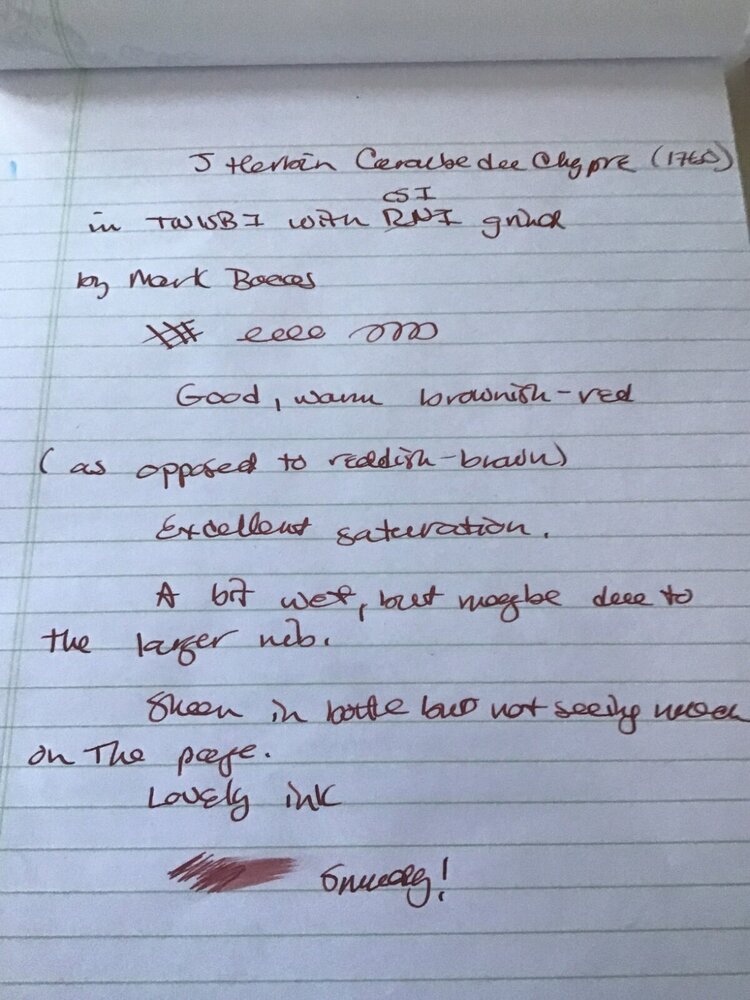 J Herbin Caroube de Chypre (1760)
CSI
in TWSBI with RNI grind
by Mark Bacas
Good, warm brownish-red
(as opposed to reddish-brown)
Excellent saturation.
A bit wet, but maybe due to
the larger nib.
Sheen in bottle but not seeing much
on The page.
Lovely ink
Smudgy!